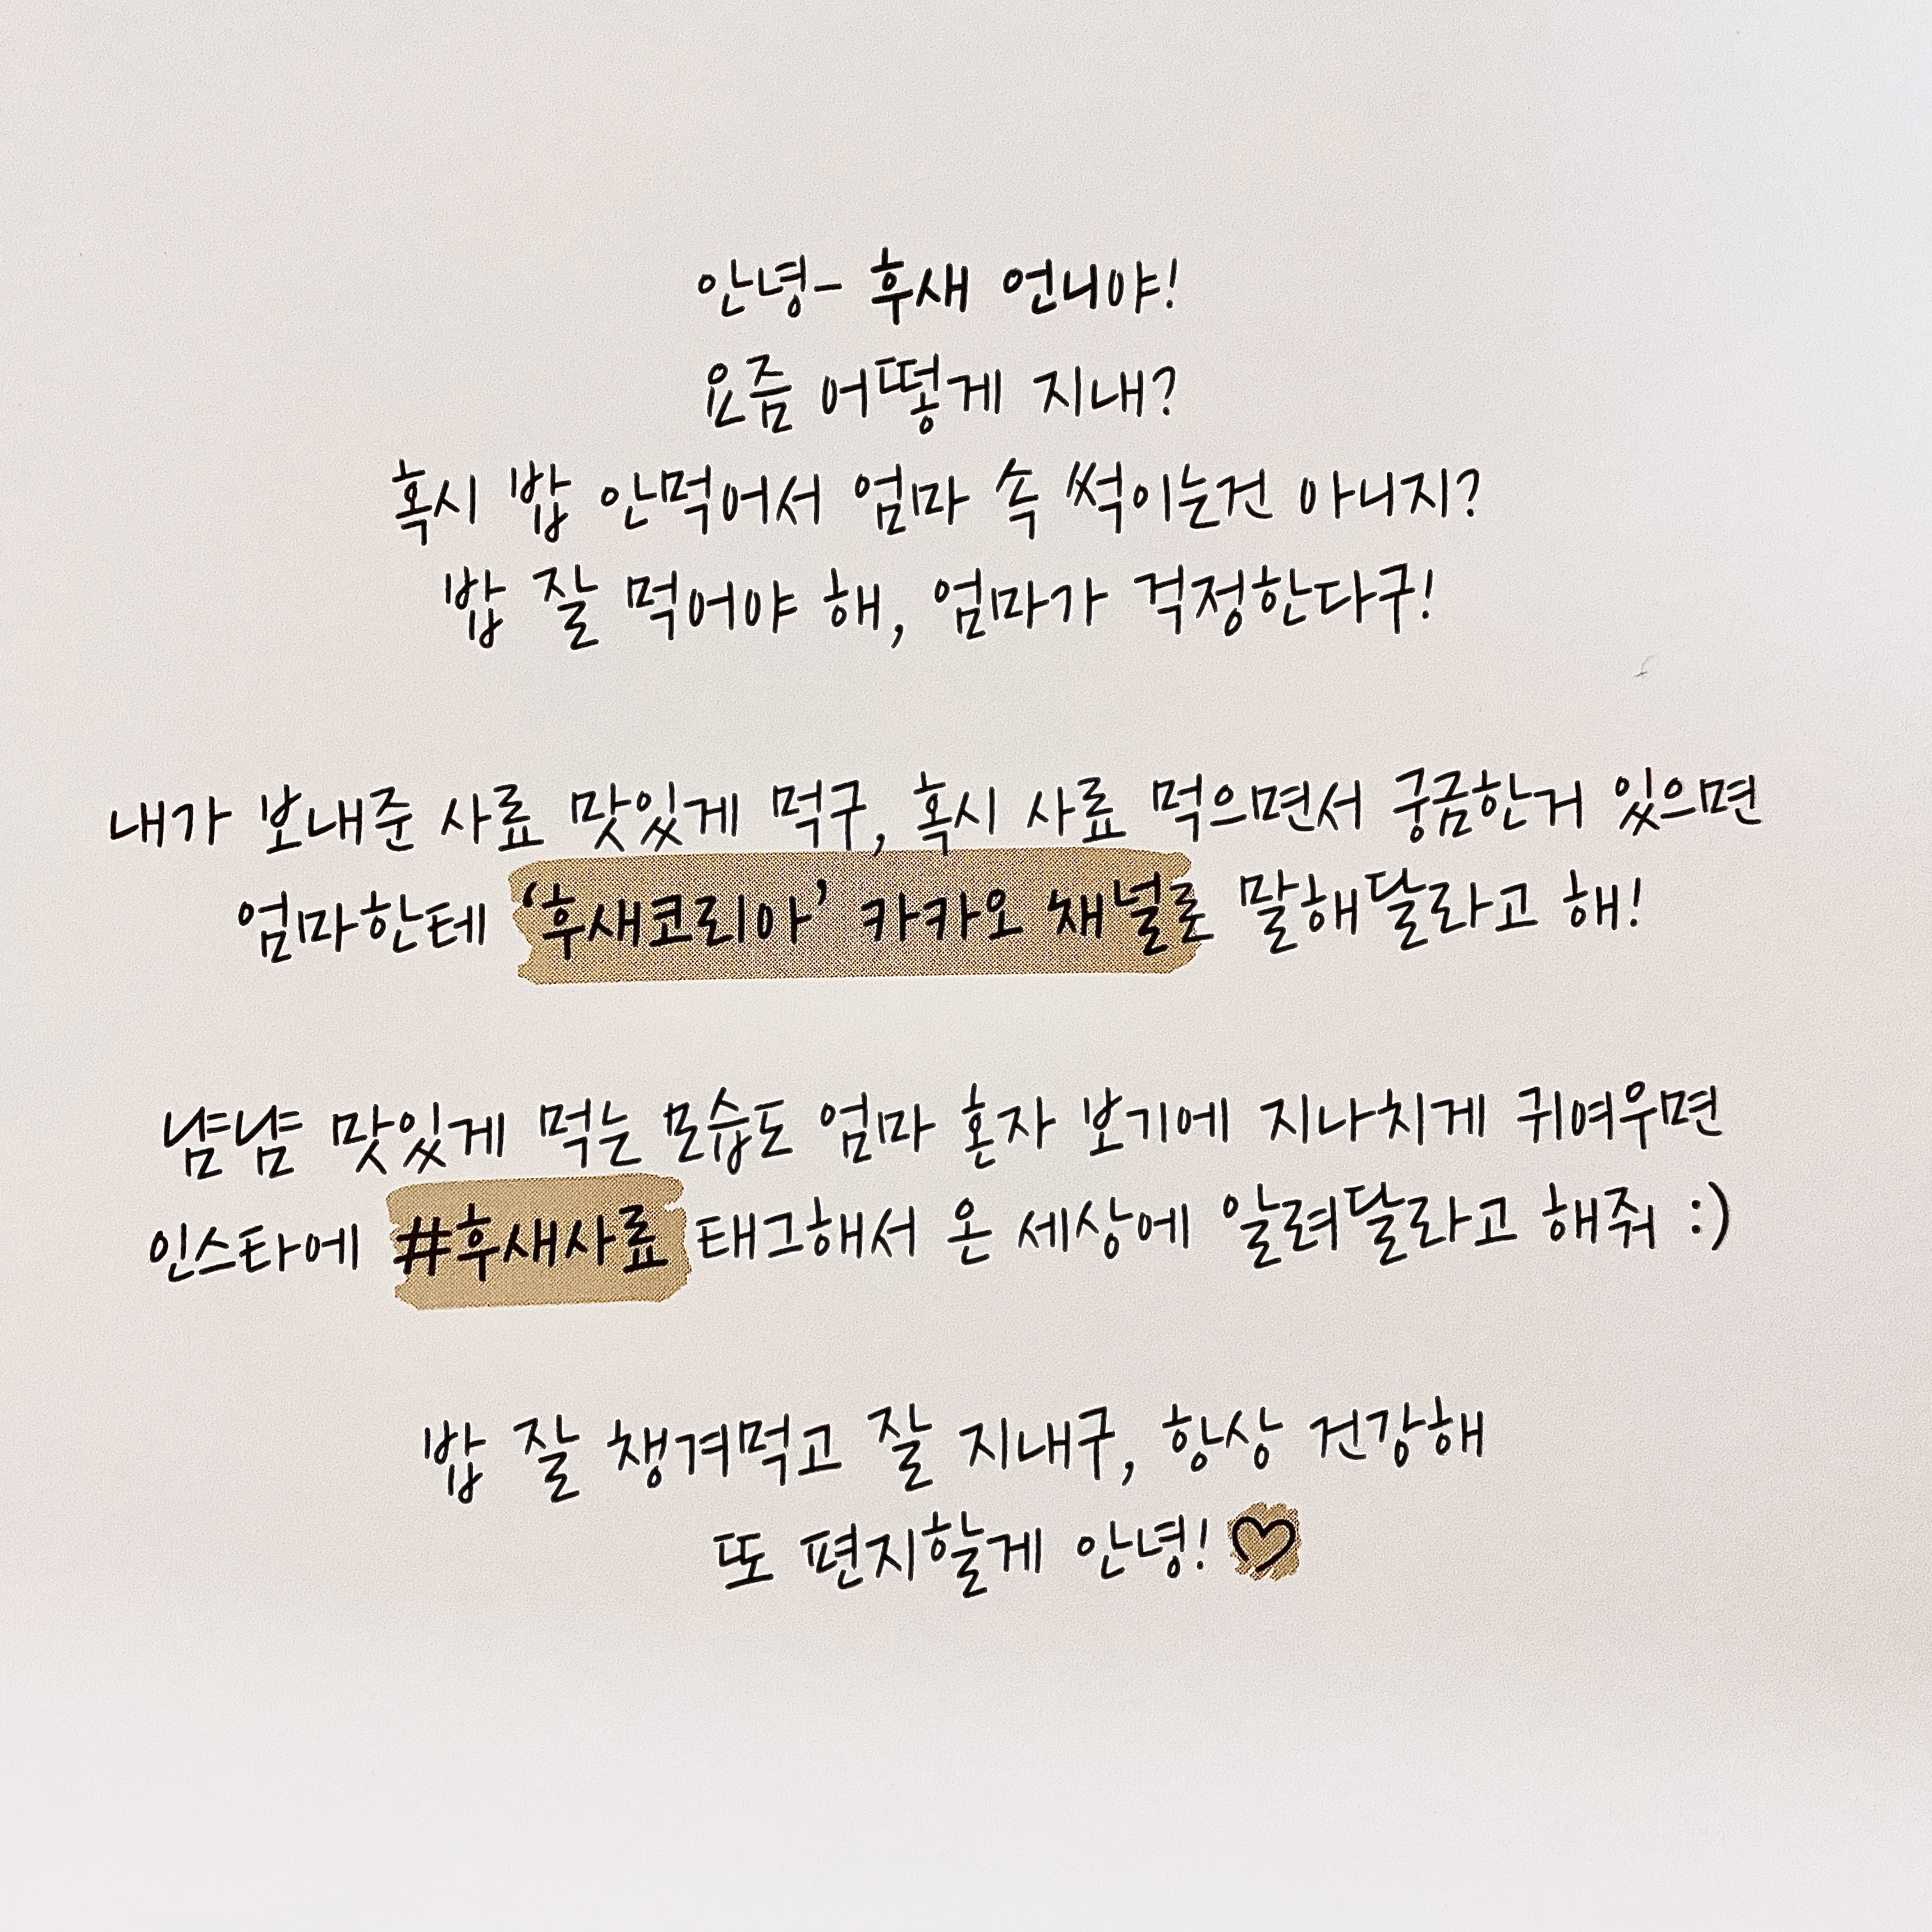 안녕- 후새 언니야!
요즘 어떻게 지내?
혹시 밥 안먹어서 엄마 속 썩이는건 아니지?
밥 잘 먹어야 해, 엄마가 걱정한다구!
내가 보내준 사료 맛있게 먹구, 혹시 사료 먹으면서 궁금한거 있으면
엄마한테 ‘후새코리아’ 카카오 채널로 말해달라고 해!
냠냠 맛있게 먹는 모습도 엄마 혼자 보기에 지나치게 귀여우면
인스타에 #후새사료 태그해서 온 세상에 알려달라고 해줘 :)
밥 잘 챙겨먹고 잘 지내구, 항상 건강해
또 편지할게 안녕! ♡